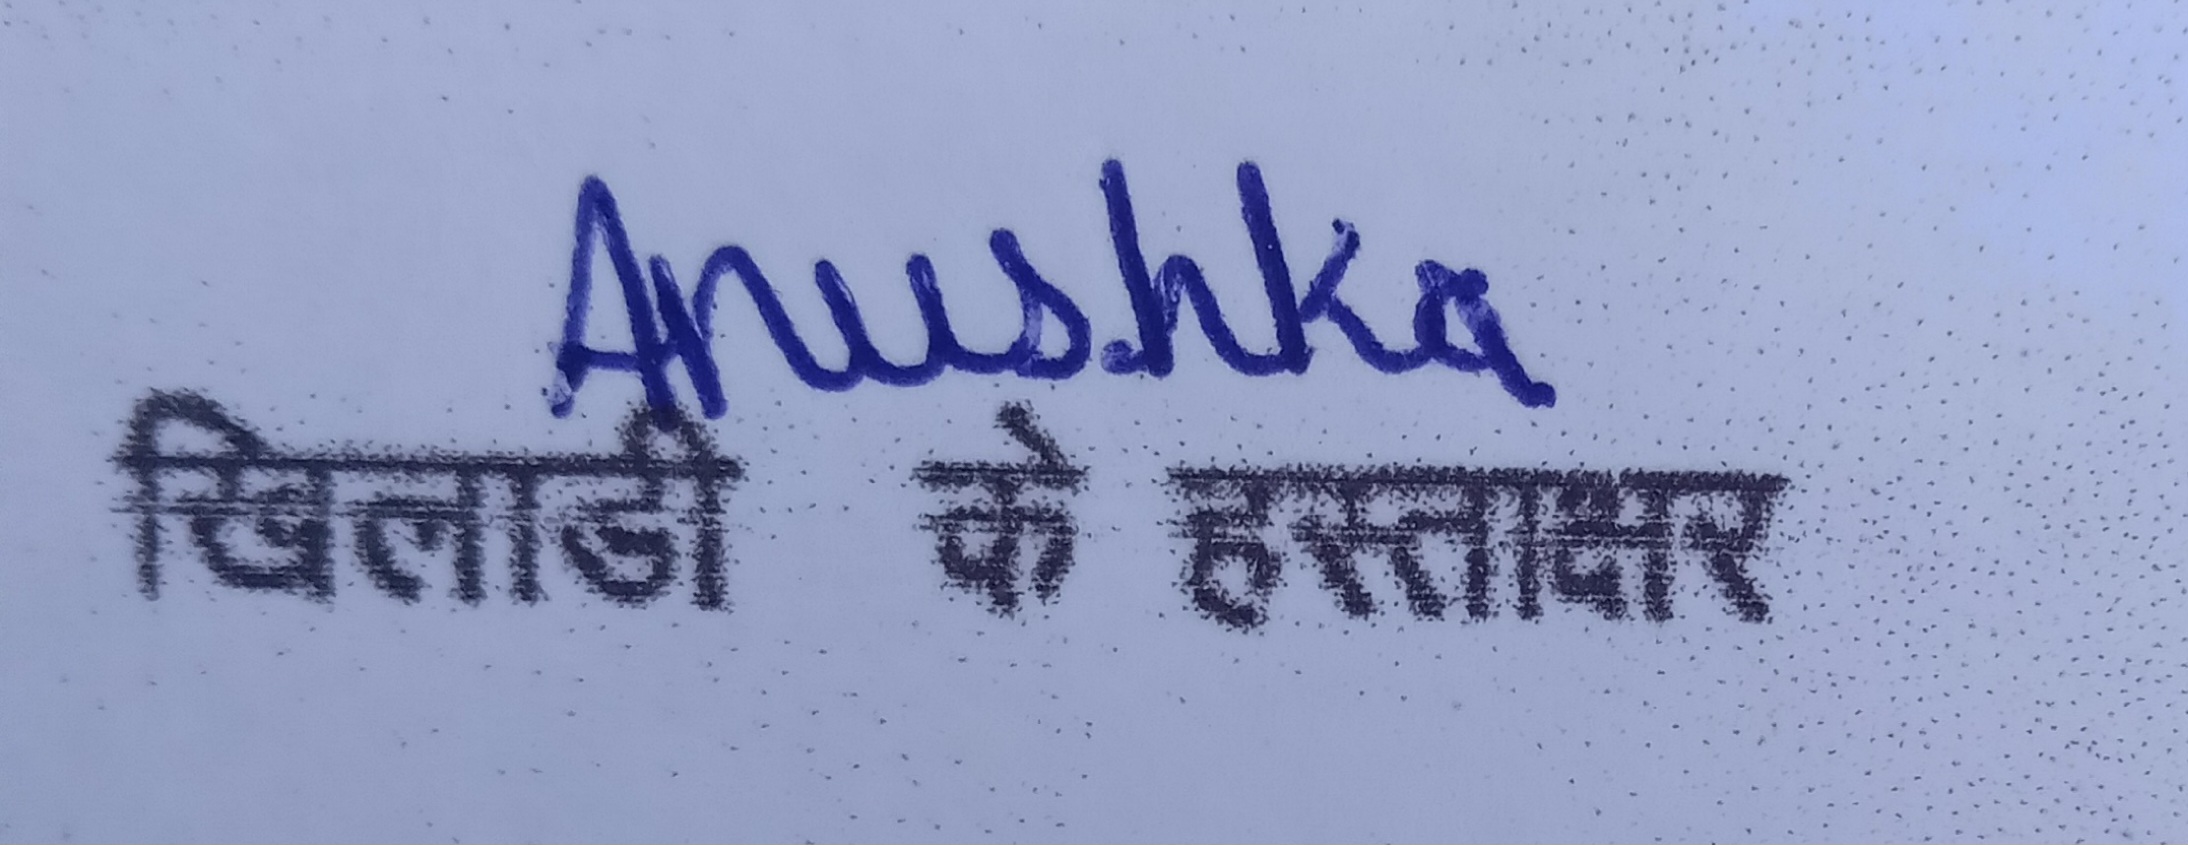 Anushka
खिलाडी के हस्ताक्षर